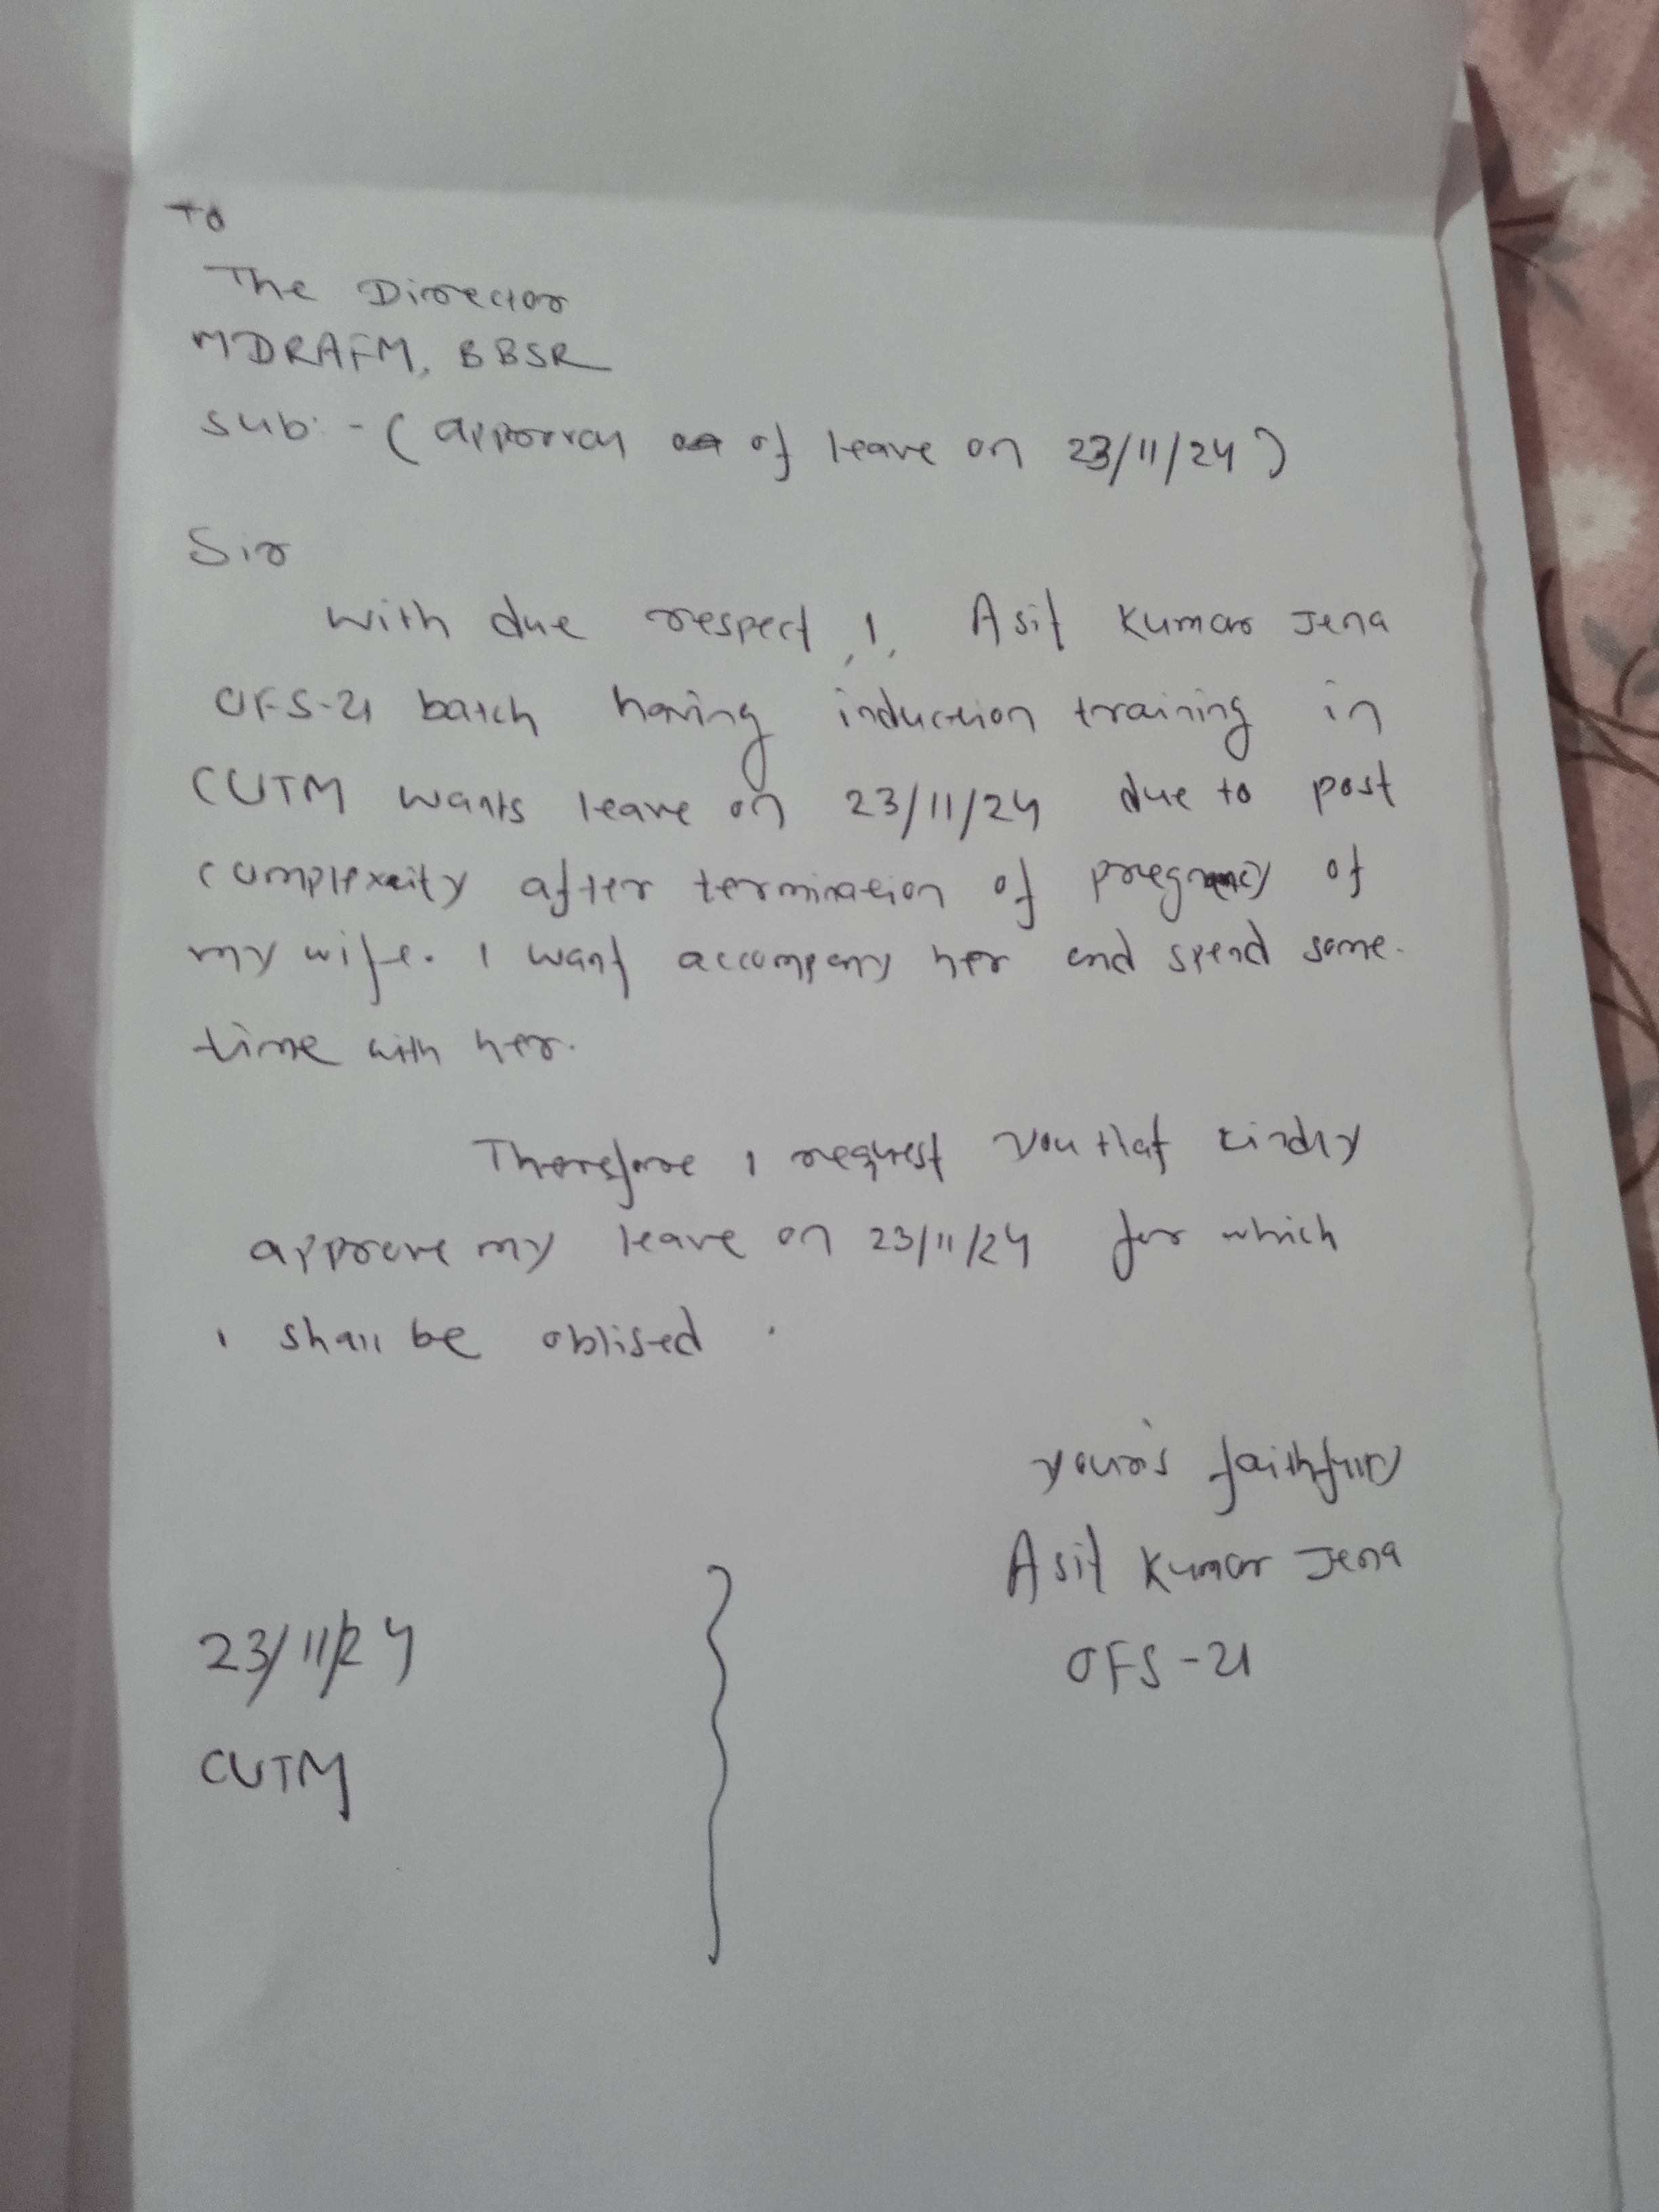 To
The Director
MDRAFM, BBSR
Sub:- (approval of leave on 23/11/24)
Sir
with due respect, I, Asit Kumar Jena
OFS-21 batch having induction training in
CUTM wants leave on 23/11/24 due to post
complexity after termination of pregnancy of
my wife. I want accompany her and spend some
time with her.
Therefore I request you that kindly
approve my leave on 23/11/24 for which
I shall be oblised.
your's faithfully
Asit Kumar Jena
OFS-21
23/11/24
CUTM